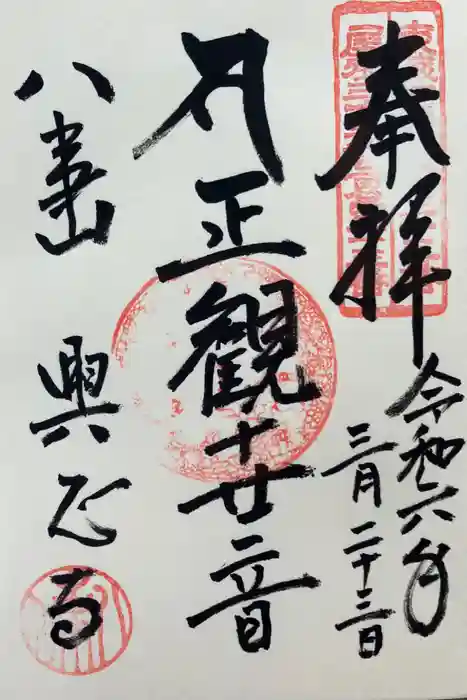 奉拝
令和六年
三月二十三日
正觀世音
八事山
興正寺